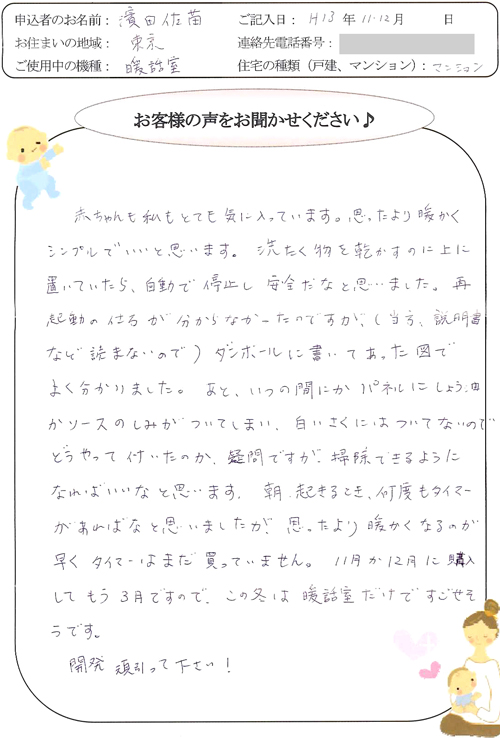 申込者のお名前：濱田佐苗 ご記入日：H13年11.12月 日
お住まいの地域：東京 連絡先電話番号：
ご使用中の機種：暖話室 住宅の種類（戸建、マンション）：マンション
お客様の声をお聞かせください♪
赤ちゃんも私もとても気に入っています。思ったより暖かく
シンプルでいいと思います。洗たく物を乾かすのに上に
置いていたら、自動で停止し安全だなと思いました。再
起動の仕方が分からなかったのですが、（当方、説明書
など読まないので）ダンボールに書いてあった図で
よく分かりました。あと、いつの間にかパネルにしょう油
かソースのしみがついてしまい、白いさくにはついてないので
どうやって付いたのか、疑問ですが、掃除できるように
なればいいなと思います。朝、起きるとき、何度もタイマー
があればなと思いましたが、思ったより暖かくなるのが
早くタイマーはまだ買っていません。11月か12月に購入
してもう3月ですので、この冬は暖話室だけですごせそ
うです。
開発頑張って下さい！